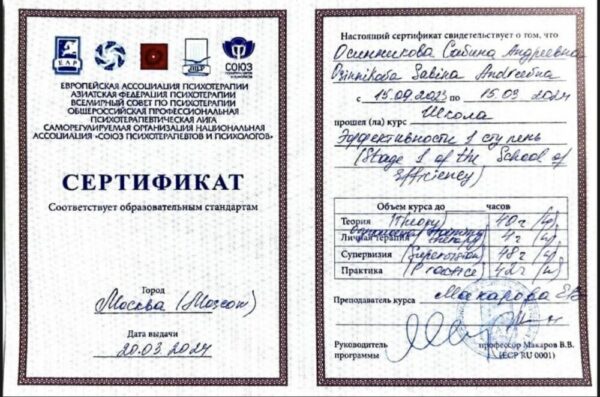 ЕАР
СОЮЗ
ЕВРОПЕЙСКАЯ АССОЦИАЦИЯ ПСИХОТЕРАПИИ
АЗИАТСКАЯ ФЕДЕРАЦИЯ ПСИХОТЕРАПИИ
ВСЕМИРНЫЙ СОВЕТ ПО ПСИХОТЕРАПИИ
ОБЩЕРОССИЙСКАЯ ПРОФЕССИОНАЛЬНАЯ
ПСИХОТЕРАПЕВТИЧЕСКАЯ ЛИГА
САМОРЕГУЛИРУЕМАЯ ОРГАНИЗАЦИЯ НАЦИОНАЛЬНАЯ
АССОЦИАЦИЯ «СОЮЗ ПСИХОТЕРАПЕВТОВ И ПСИХОЛОГОВ»
СЕРТИФИКАТ
Соответствует образовательным стандартам
Город
Москва (Moscow)
Дата выдачи
20.03.2024
Настоящий сертификат свидетельствует о том, что
Осинникова Сабина Андреевна
Sabina
с 15.09.2023 по 15.03.2024
прошел (ла) курс Школа
Эффективности 1 ступень
(Stage 1 of the School of
Efficiency)
Объем курса до часов
Теория (Theory) 40 ч (h)
Личная терапия 4 ч (h)
Супервизия (Supervision) 48 ч (h)
Практика (Practice) 42 ч (h)
Преподаватель курса Макарова Е.В.
Руководитель программы
профессор Макаров В.В.
(ECP RU 0001)